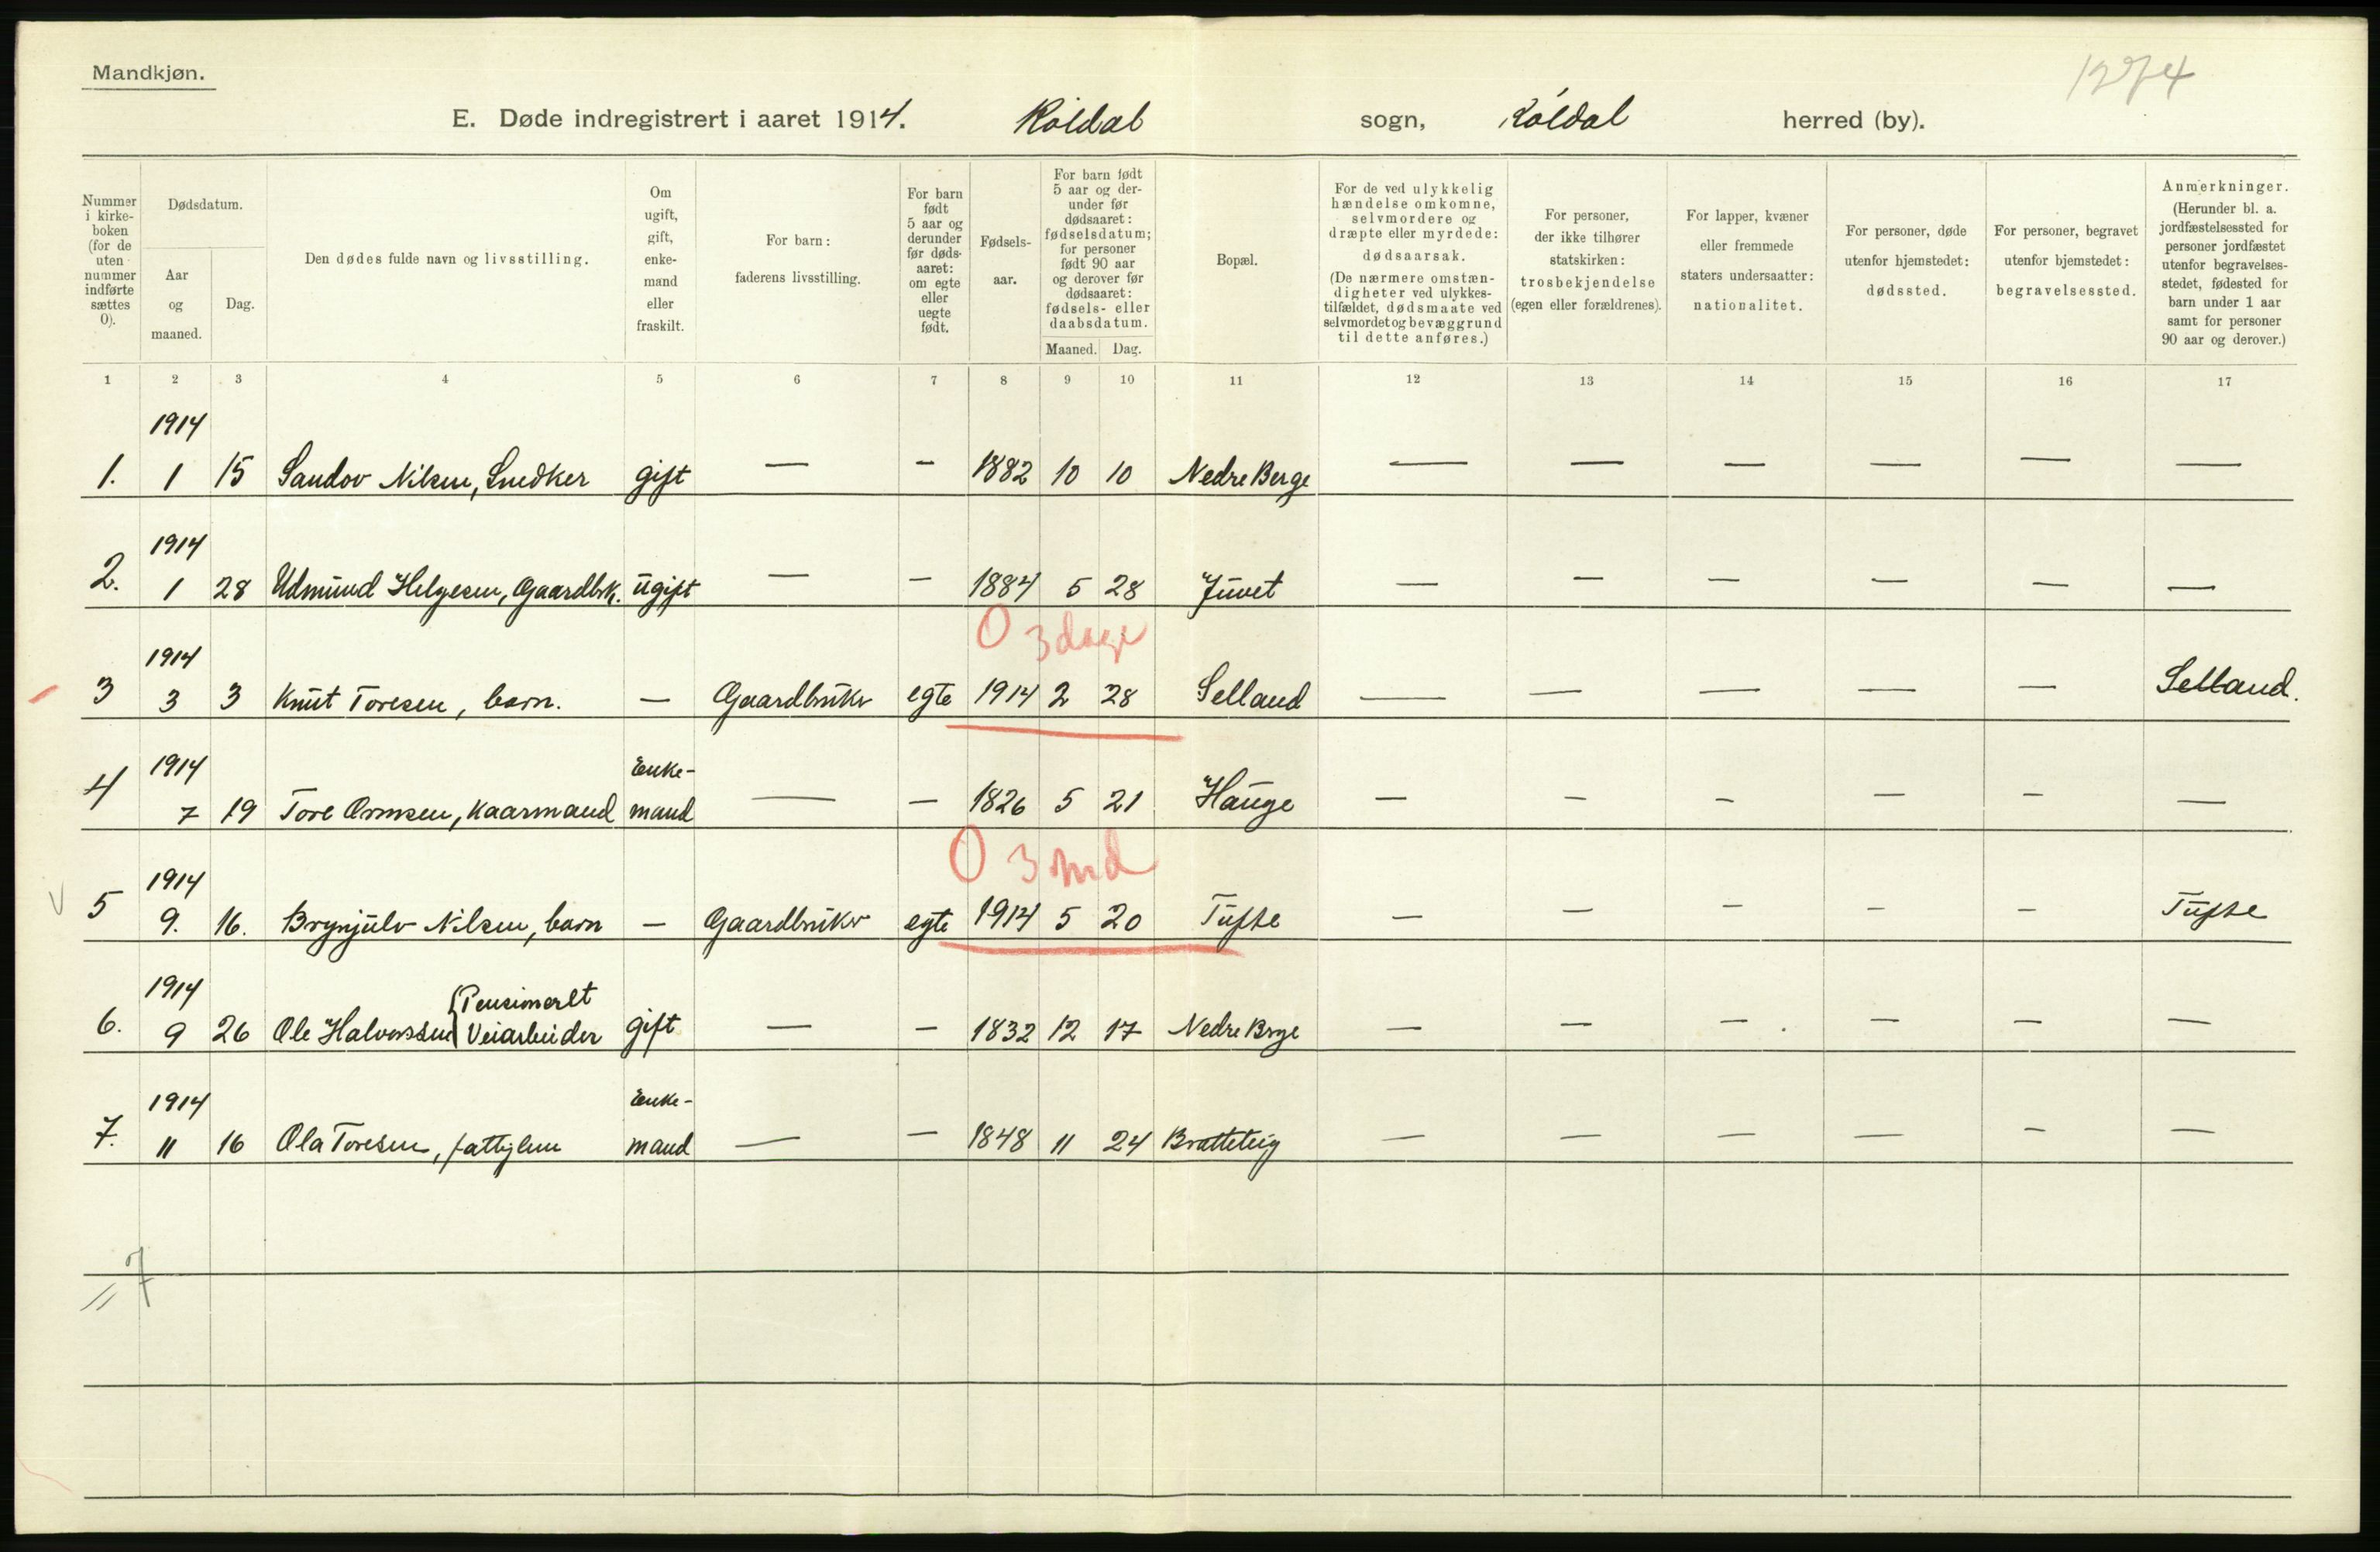 Mandkjøn.
1274
E. Døde indregistrert i aaret 1914. Røldal sogn, Røldal herred (by).
Nummer i kirkeboken (for de uten nummer indførte sættes 0).
Dødsdatum.
Aar og maaned.
Dag.
Den dødes fulde navn og livsstilling.
Om ugift, gift, enkemand eller fraskilt.
For barn: faderens livsstilling.
For barn født 5 aar og derunder før dødsaaret: om egte eller uegte født.
Fødselsaar.
For barn født 5 aar og derunder før dødsaaret: fødselsdatum; for personer født 90 aar og derover før dødsaaret: fødsels- eller daabsdatum.
Maaned. Dag.
Bopæl.
For de ved ulykkelig hændelse omkomne, selvmordere og dræpte eller myrdede: dødsaarsak. (De nærmere omstændigheter ved ulykkestilfældet, dødsmaate ved selvmordet og bevæggrund til dette anføres.)
For personer, der ikke tilhører statskirken: trosbekjendelse (egen eller forældrenes).
For lapper, kvæner eller fremmede staters undersaatter: nationalitet.
For personer, døde utenfor hjemstedet: dødssted.
For personer, begravet utenfor hjemstedet: begravelsessted.
Anmerkninger. (Herunder bl. a. jordfæstelsessted for personer jordfæstet utenfor begravelsesstedet, fødested for barn under 1 aar samt for personer 90 aar og derover.)
1 2 3 4 5 6 7 8 9 10 11 12 13 14 15 16 17
1914
1. 1 15 Sandov Nilsen, Snedker gift — — 1882 10 10 Nedre Berge — — — — — —
1914
2. 1 28 Udmund Helgesen, Gaardbrk. ugift — — 1884 5 28 Juvet — — — — — —
0 3 dage
1914
3 3 3 Knut Toresen, barn. — Gaardbruker egte 1914 2 28 Selland — — — — — Selland.
1914 Enke-
4 7 19 Tore Ormsen, Kaarmand mand — — 1826 5 21 Hauge — — — — — —
0 3 md
1914
5 9. 16. Brynjulv Nilsen, barn — Gaardbruker egte 1914 5 20 Tufte — — — — — Tufte
1914 Pensioneret
6. 9 26 Ole Halvorssen Veiarbeider gift — — 1832 12 17 Nedre Brge — — — — — —
1914 Enke-
7. 11 16 Ola Toresen, fattiglem mand — — 1848 11 24 Bratteteig — — — — — —
7